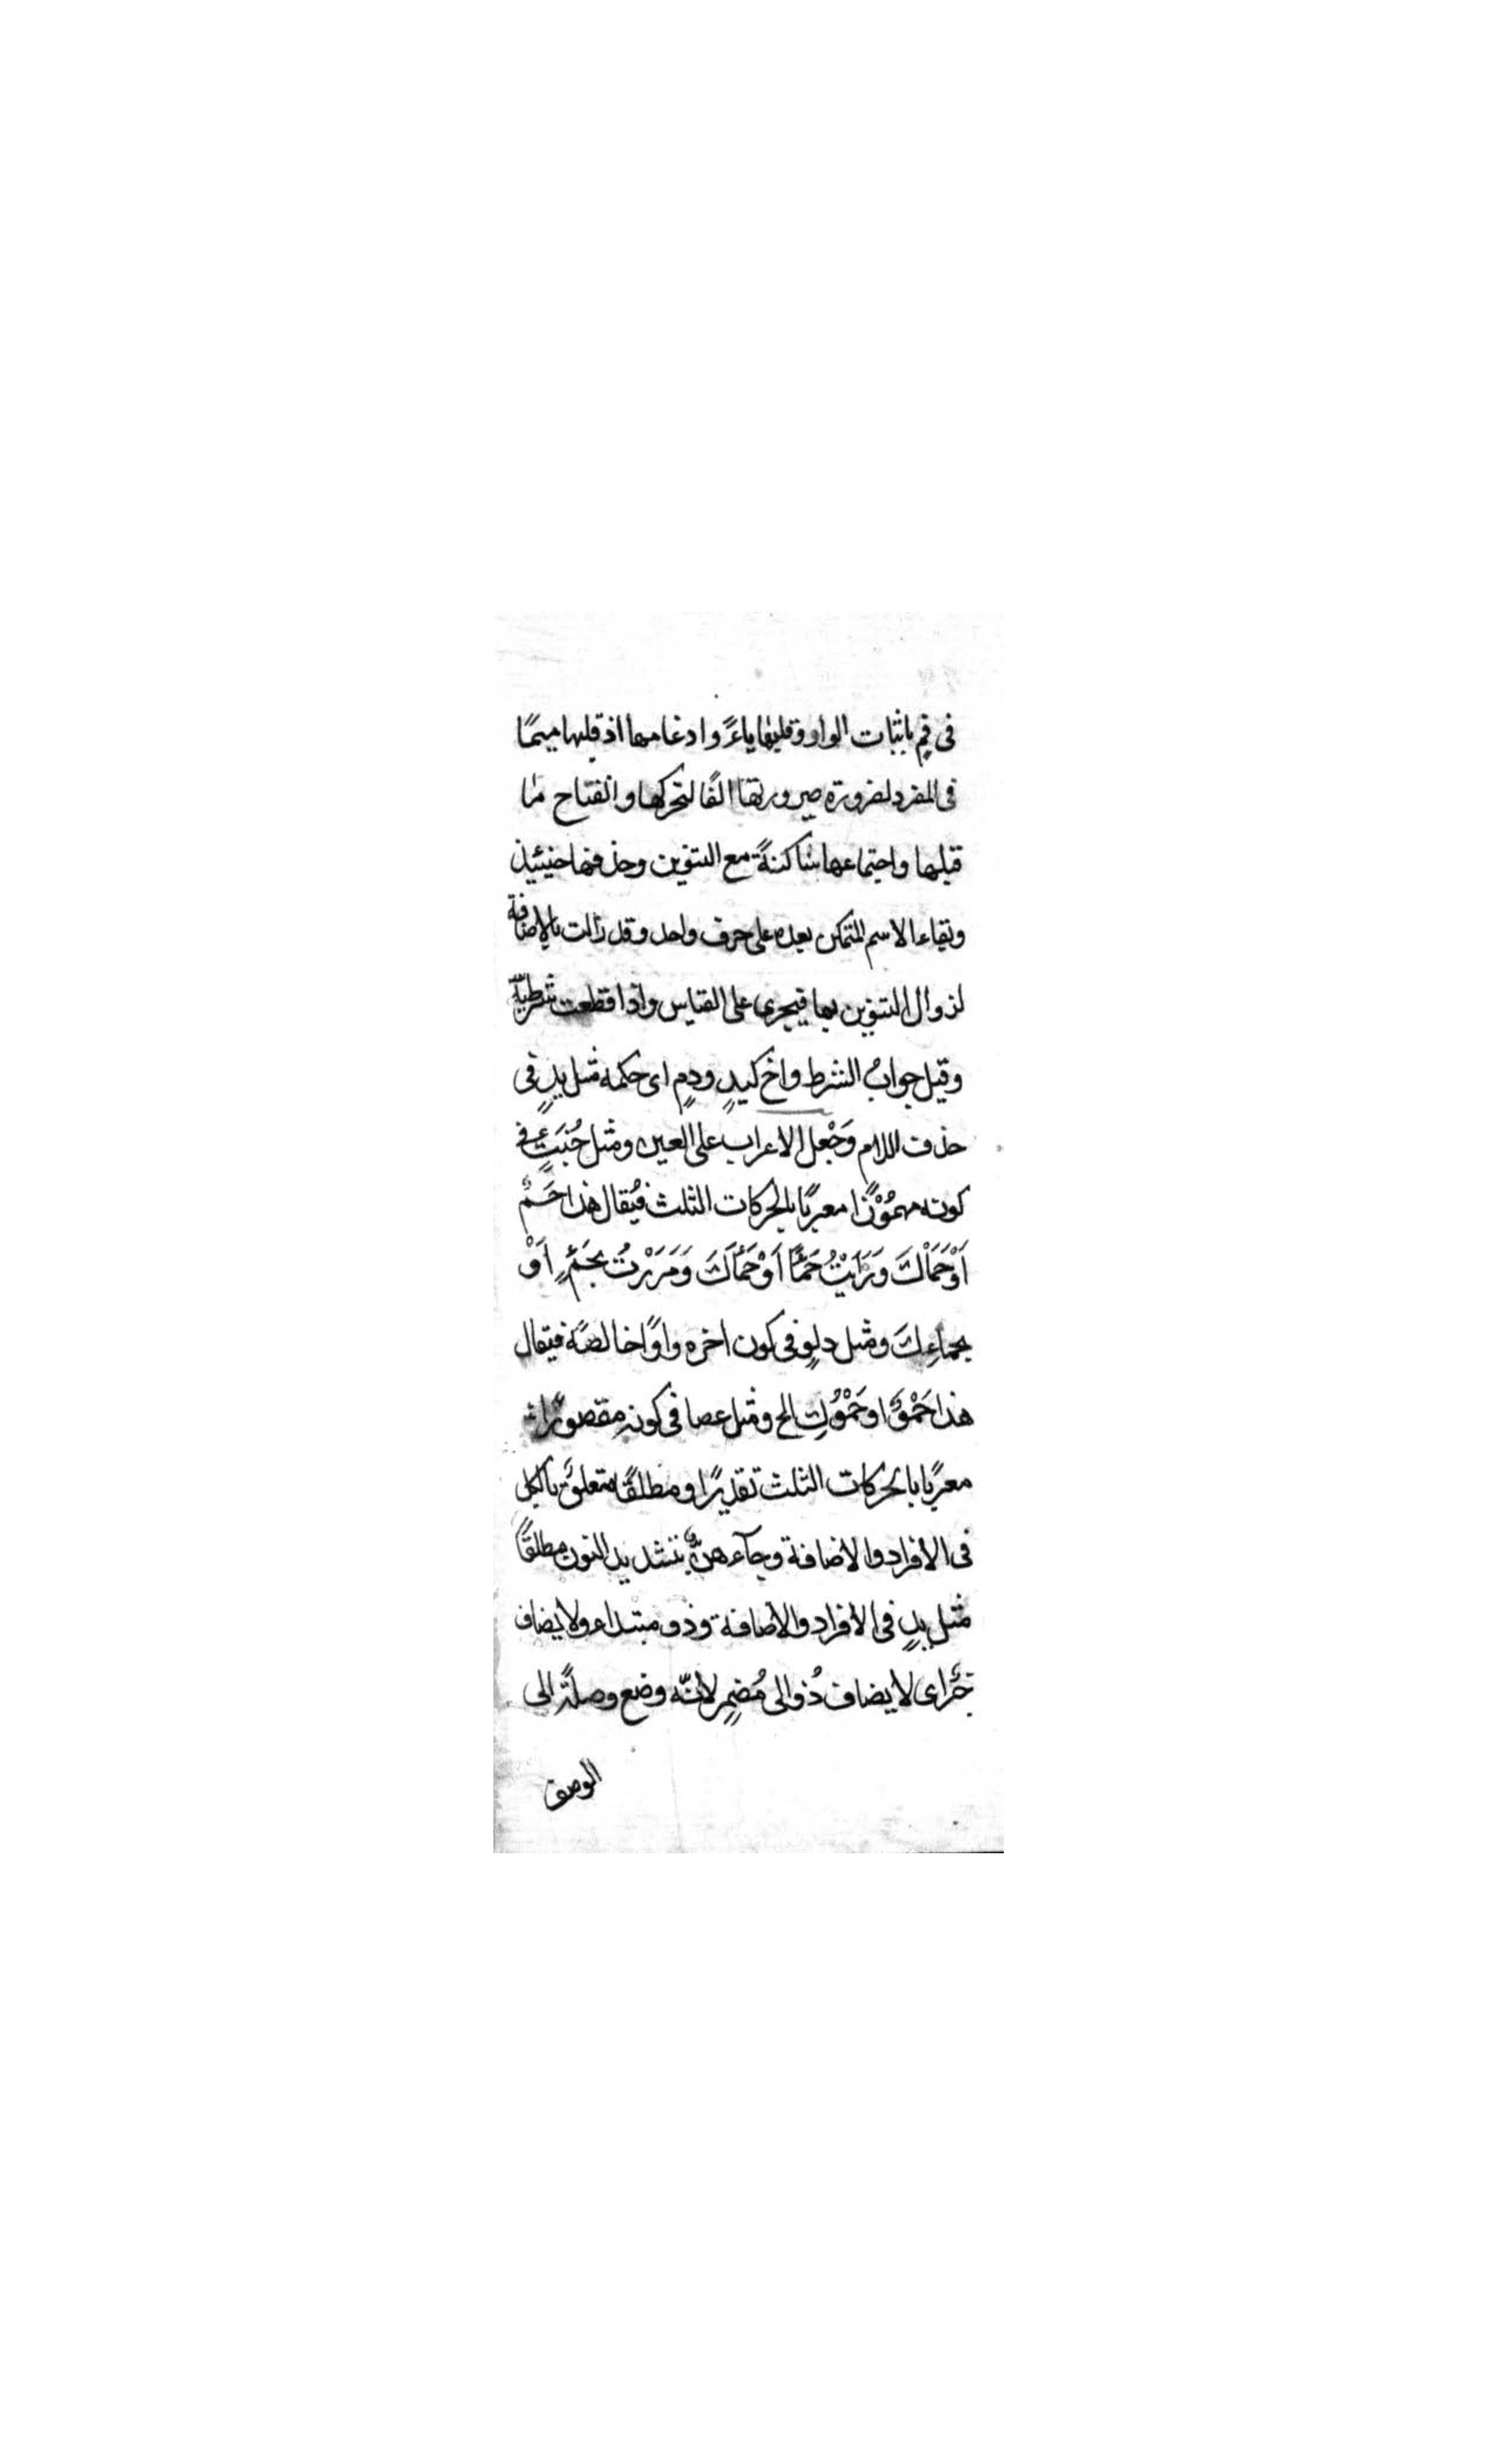 فى فمٍ باثبات الواو وقلبها ياءً وادغامها اذ قلبها ميمًا
فى المفرد لضرورة صيرورتها الفًا لتحركها وانفتاح ما
قبلها واجتماعها ساكنةً مع التنوين وحذفها حينئيذ
وبقاء الاسم المتمكن بعده على حرف واحد وقد زالت بالاضافة
لزوال التنوين بها فيجرى على القياس واذا قطعت شرطيّة
وقيل جوابُ الشرط واخ كيدٍ ودمٍ اى حكمه مثل يدٍ فى
حذف اللام وَجْعل الاعراب على العين ومثل خُبَتٍ فى
كونه مهمُوْزًا معربًا بالحركات الثلث فيُقال هذا حَمْءٌ
اَوْحَمْاُكَ وَرَاَيْتُ حَمًْا اَوْحَمْاَكَ وَمَرَرْتُ بحَمْءٍ اَوْ
بحماءِكَ ومثل دلوٍ فى كون اخره واوًا خالصةً فيقال
هذا حَمْوٌ اوحَمْوُكِ الخ ومثل عصا فى كونه مقصورًا
معربًا بالحركات الثلث تقديرًا ومطلقًا متعلقٌ بالكل
فى الافراد والاضافة وجآء هنٌّ بتشديد النون مطلقًا
مثل يدٍ فى الافراد والاضافة وذو مبتداء ولايضاف
خبرٌ اى لايضاف ذُو الى مُضمِرٍ لانّه وضع وصلةً الى
الوصف